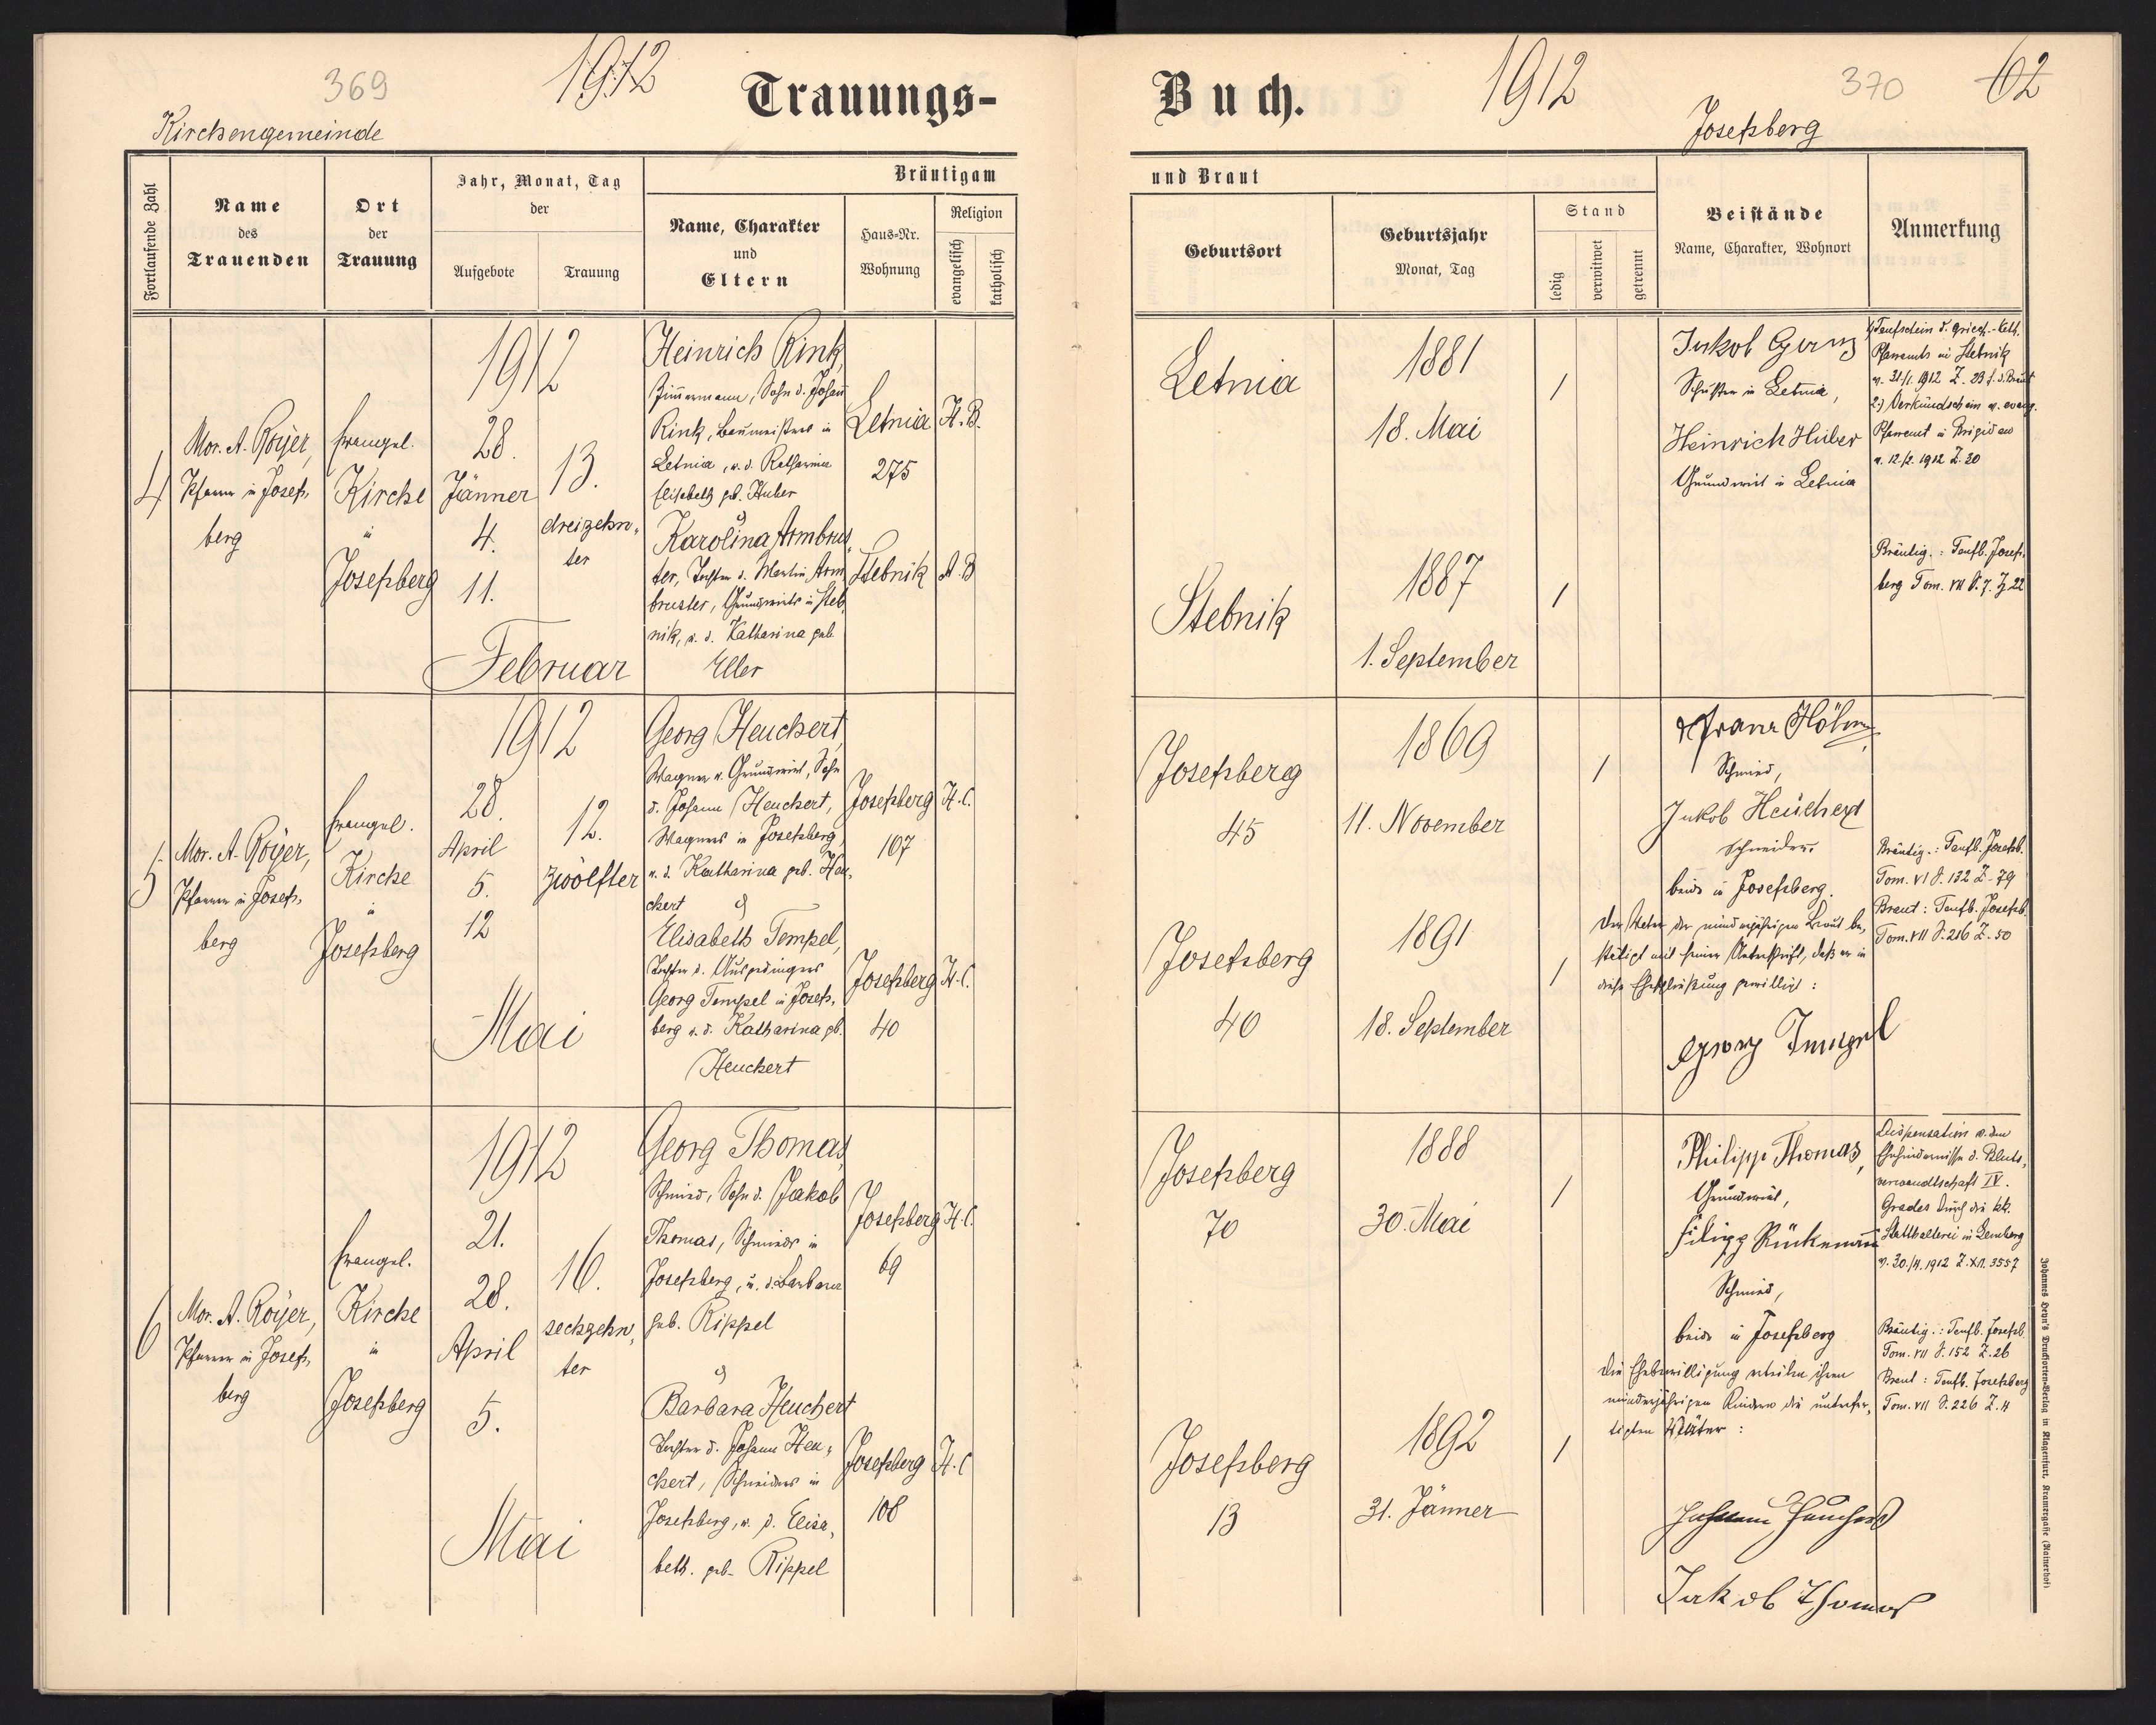 369
1912
Trauungs-
Buch.
1912
370
62
Kirchengemeinde
Josefsberg
Fortlaufende Zahl
Name
des
Trauenden
Ort
der
Trauung
Jahr, Monat, Tag
der
Aufgebote
Trauung
Bräutigam
Name, Charakter
und
Eltern
Haus-Nr.
Wohnung
Religion
evangelisch
katholisch
und Braut
Geburtsort
Geburtsjahr
Monat, Tag
Stand
ledig
verwitwet
getrennt
Beistände
Name, Charakter, Wohnort
Anmerkung
4
Mor. A. Royer,
Pfarrer in Josefs,
berg
Evangel.
Kirche
in
Josefsberg
1912
28.
Jänner
4.
11.
Februar
13.
dreizehn,
ter
Heinrich Rink,
Zimmermann, Sohn d. Johann
Rink, Baumeisters in
Letnia, u. d. Katharina
Elisabeth geb. Huber
&
Karolina Armbrus,
ter, Tochter d. Martin Arm,
bruster, Grundwirts in Steb,
nik, u. d. Katharina geb.
Eller
Letnia
275
A. B.
Stebnik
A. B
Letnia
1881
18. Mai
/
Stebnik
1887
1. September
/
Jakob
Schuster in Letnia,
Heinrich Huber
Grundwirt in Letnia
1) Taufschein d. griech.-kath.
Pfarramts in Stebnik
v. 31/1. 1912 Z. 23 f. d. Braut
2.) Verkündschein v. evang.
Pfarramt in Brigidau
v. 12/2. 1912 Z. 30
Bräutig.: Taufb. Josefs,
berg Tom. VII S. 7. Z 22
5
Mor. A. Royer,
Pfarrer in Josefs,
berg
Evangel.
Kirche
in
Josefsberg
1912
28.
April
5.
12
Mai
12.
zwölfter
Georg Heuchert,
Wagner u. Grundwirt, Sohn
d. Johann Heuchert,
Wagners in Josefsberg,
u. d. Katharina geb. Heu,
chert &
Elisabeth Tempel,
Tochter d. Ausgedingers
Georg Tempel in Josefs,
berg u. d. Katharina gb.
Heuchert
Josefsberg
107
H. C.
Josefsberg
40
H. C.
Josefsberg
45
1869
11. November
/
Josefsberg
40
1891
18. September
/
Franz Höhn
Schmied,
Jakob Heuchert
Schneider,
beide in Josefsberg.
Der Vater der minderjährigen Braut be,
stätigt mit seiner Unterschrift, daß er in
diese Eheschließung gewilligt:
Georg Tempel
Bräutig.: Taufb. Josefsb.
Tom. VI S. 132 Z. 79
Braut: Taufb. Josefsb.
Tom. VII S. 216 Z. 50
6
Mor. A. Royer,
Pfarrer in Josefs,
berg
Evangel.
Kirche
in
Josefsberg
1912
21.
28.
April
5.
Mai
16.
sechzehn,
ter
Georg Thomas,
Schmied, Sohn d. Jakob
Thomas, Schmieds in
Josefsberg, u. d. Barbara
geb. Rippel
&
Barbara Heuchert
Tochter d. Johann Heu,
chert, Schneiders in
Josefsberg, u. d. Elisa,
beth. geb. Rippel
Josefsberg
69
H. C.
Josefsberg
108
H. C
Josefsberg
70
1888
30. Mai
/
Josefsberg
13
1892
31. Jänner
/
Philipp Thomas,
Grundwirt,
Filipp Rückemann
Schmied,
beide in Josefsberg
Die Ehebewilligung erteilen ihren
minderjährigen Kindern die unterfer,
tigten Väter:
Johann Heuchert
Jakob Thomas
Dispensation v. dem
Ehehindernisse d. Bluts,
verwandtschaft IV.
Grades durch die kk.
Statthalterei in Lemberg
v. 30/4. 1912 Z. XII. 3557
Bräutig.: Taufb. Josefsb.
Tom. VII S. 152 Z. 26
Braut: Taufb. Josefsberg
Tom. VII S. 226 Z. 4
Johannes Heyn's Drucksorten-Verlag in Klagenfurt, Kramergasse (Rainerhof)